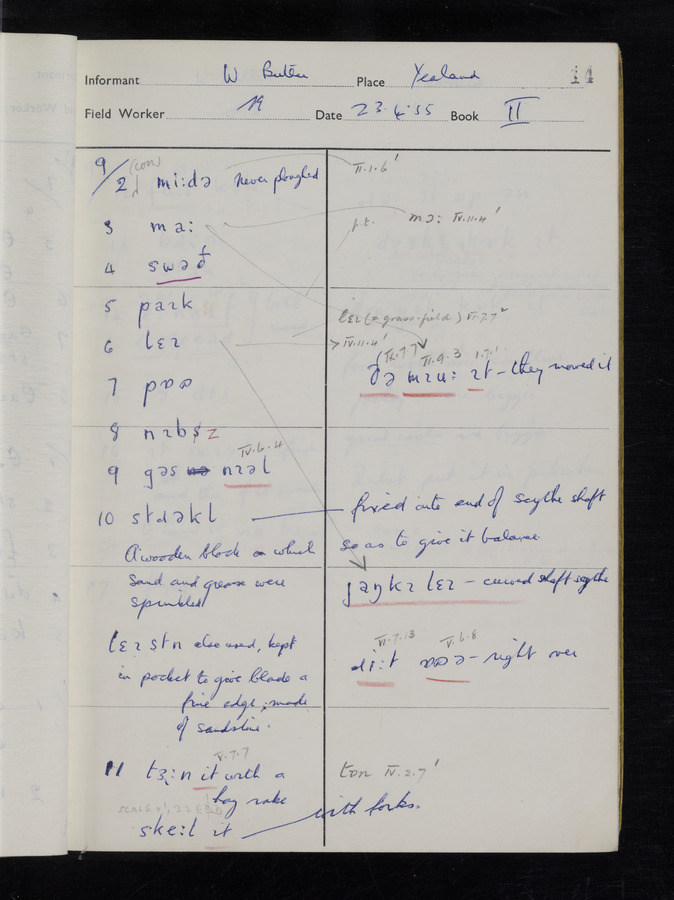 Informant W Butler Place Yealand 14
Field Worker Date 23.4.55 Book II
9/2 (con) mi:də never ploughed
II.1.6'
3 ma:
p.t. mə: IV.11.4'
4 swəđ
5 park
lɛɪ (= grass-field) VI.7.7²
6 lɛɪ
> IV.11.4'
II.9.3 1.7.1'
ðə mɪu: ɪt – they mowed it
7
8
IV.6.4
9 gəs nɪəl
10 stɹəkl
fixed into end of scythe shaft
so as to give it balance
A wooden block on which
sand and grease were
sprinkled
jaŋkɪ lɛɪ – curved shaft scythe
lɛɪ stn also used, kept
in pocket to give blade a
fine edge, made
of sandstone.
VI.7.13 V.6.8
– right over
V.7.7
11 tɜ:n it with a
hay rake
ton IV.2.7'
ske:l ɪt with forks.